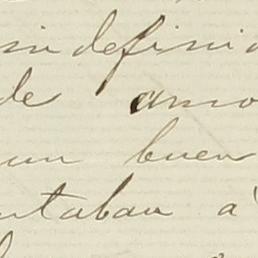 indefini
de amo
un buen
ntaban á